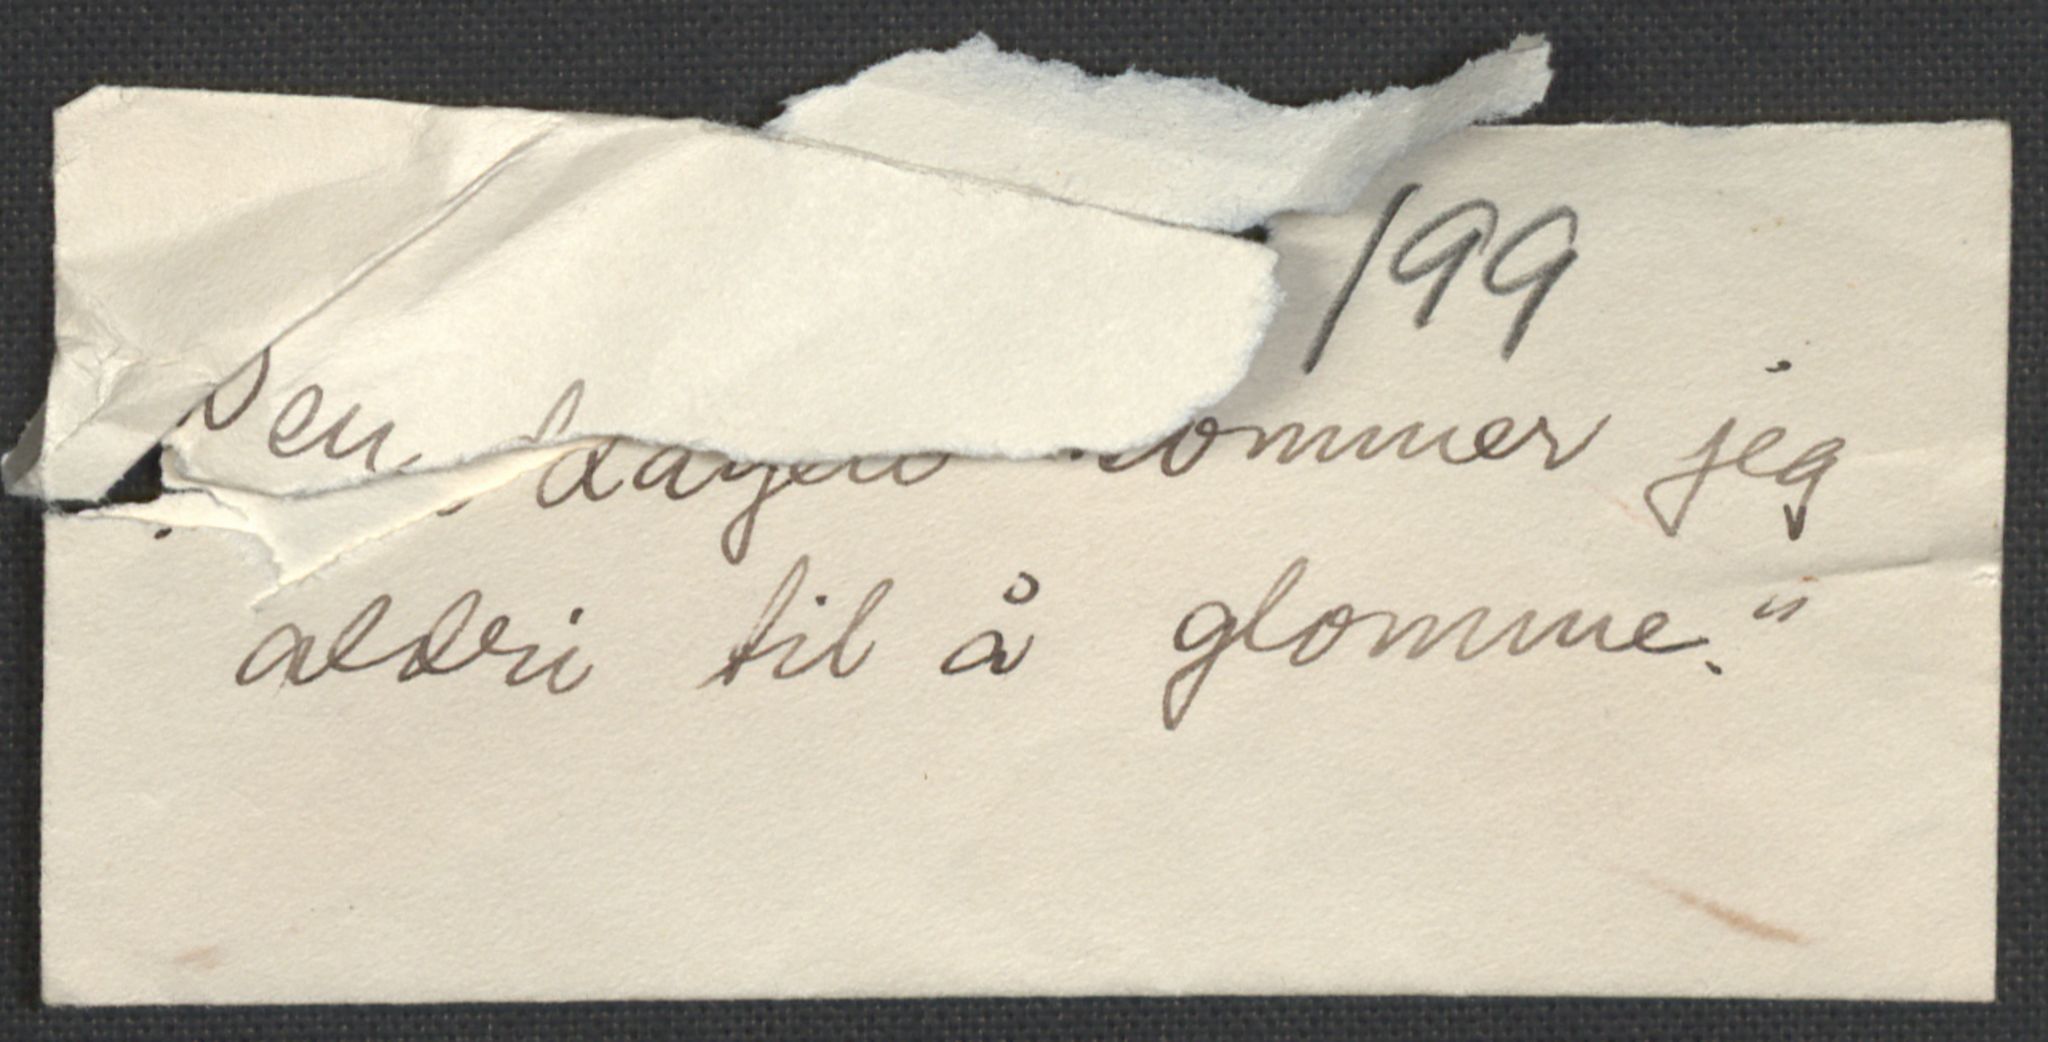 199
Den dagen kommer jeg
aldri til å glomme."